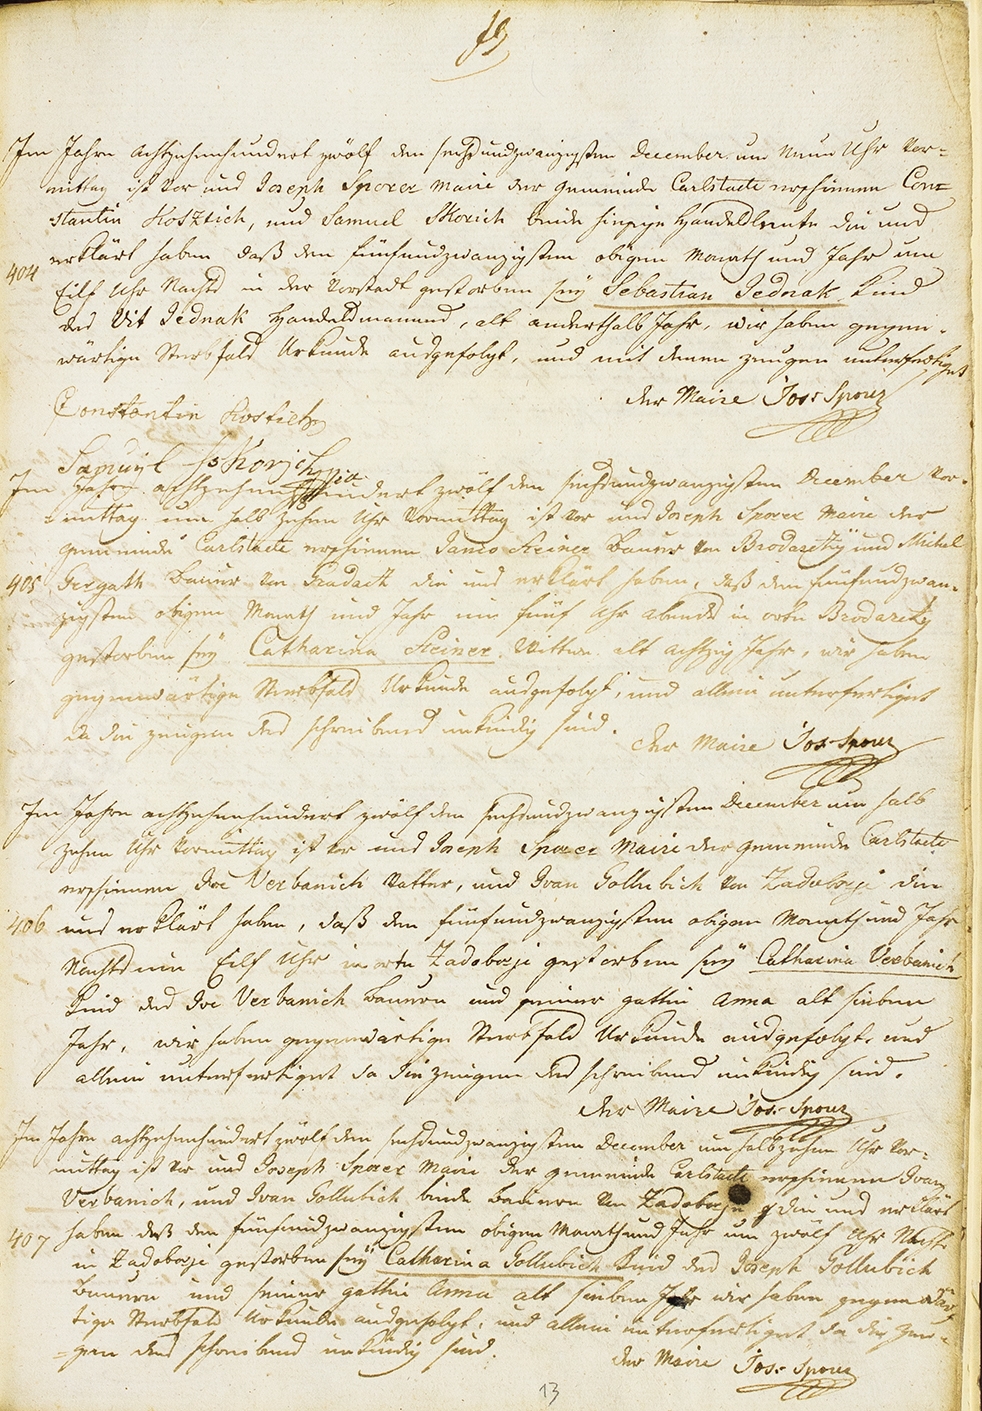 Im Jahre achtzehnhundert zwölf den sechsundzwanzigsten December um Neun Uhr Vor=
mittag ist vor uns Joseph Sporer Maire der Gemeinde Carlstadt erschienen Con=
stantin Kosztich, und Samuel Skorich beide hiesige Handelsleute die uns
erklärt haben daß den fünfundzwanzigsten obigen Monath und Jahr um
404
Eilf Uhr Nachts in der Vorstadt gestorben sey Sebastian Jednak Kind
des Vit Jednak Handelsmannes, alt anderthalb Jahr, wir haben gegen=
wärtige Sterbfalls Urkunde ausgefolgt, und mit denen Zeugen unterfertiget
der Maire Jos: Sporer
Constantin Kostich
Samuil Skorich
Im Jahre achtzehnhundert zwölf den sechsundzwanzigsten December Vor=
mittag um halb zehen Uhr Vormittag ist vor uns Joseph Sporer Maire der
Gemeinde Carlstadt erschienen Janco Steiner Bauer von Brodaretz und Michel
405 Gergath Bauer von Gradatz die uns erklärt haben, daß den fünfundzwan=
zigsten obigen Monath und Jahr um fünf Uhr abends in orte Brodaretz
gestorben sey Catharina Steiner Wittwe alt achtzig Jahr, wir haben
gegenwärtige Sterbfalls Urkunde ausgefolgt, und allein unterfertiget
da die Zeugen des schreibens unkündig sind.
der Maire Jos: Sporer
Im Jahre achtzehenhundert zwölf den sechsundzwanzigsten December um halb
zehen Uhr Vormittag ist vor uns Joseph Sporer Maire der Gemeinde Carlstadt
erschienen Ive Verbanich Vatter, und Ivan Gollubich von Zadoborje die
406 uns erklärt haben, daß den fünfundzwanzigsten obigen Monath und Jahr
Nachts um Eilf Uhr in orte Zadoborje gestorben sey Catharina Verbanich
Kind des Ive Verbanich Bauern und seiner gattin Anna alt sieben
Jahr, wir haben gegenwärtige Sterbfalls Urkunde ausgefolgt, und
allein unterfertiget da die Zeugen des schreibens unkündig sind.
der Maire Jos: Sporer
Im Jahre achtzehenhundert zwölf den sechsundzwanzigsten December um halb zehen Uhr Vor=
mittag ist vor uns Joseph Sporer Maire der gemeinde Carlstadt erschienen Ivan
Verbanich, und Ivan Gollubich beide Bauern von Zadoborje die uns erklärt
407 haben daß den fünfundzwanzigsten obigen Monath und Jahr um zwölf Uhr Nachts
in Zadoborje gestorben sey Catharina Gollubich Kind des Joseph Gollubich
Bauern und seiner gattin Anna alt sieben Jahr wir haben gegenwär=
tige Sterbfalls Urkunde ausgefolgt, und allein unterfertiget da die Zeu=
=gen des schreibens unkündig sind.
der Maire Jos: Sporer
13